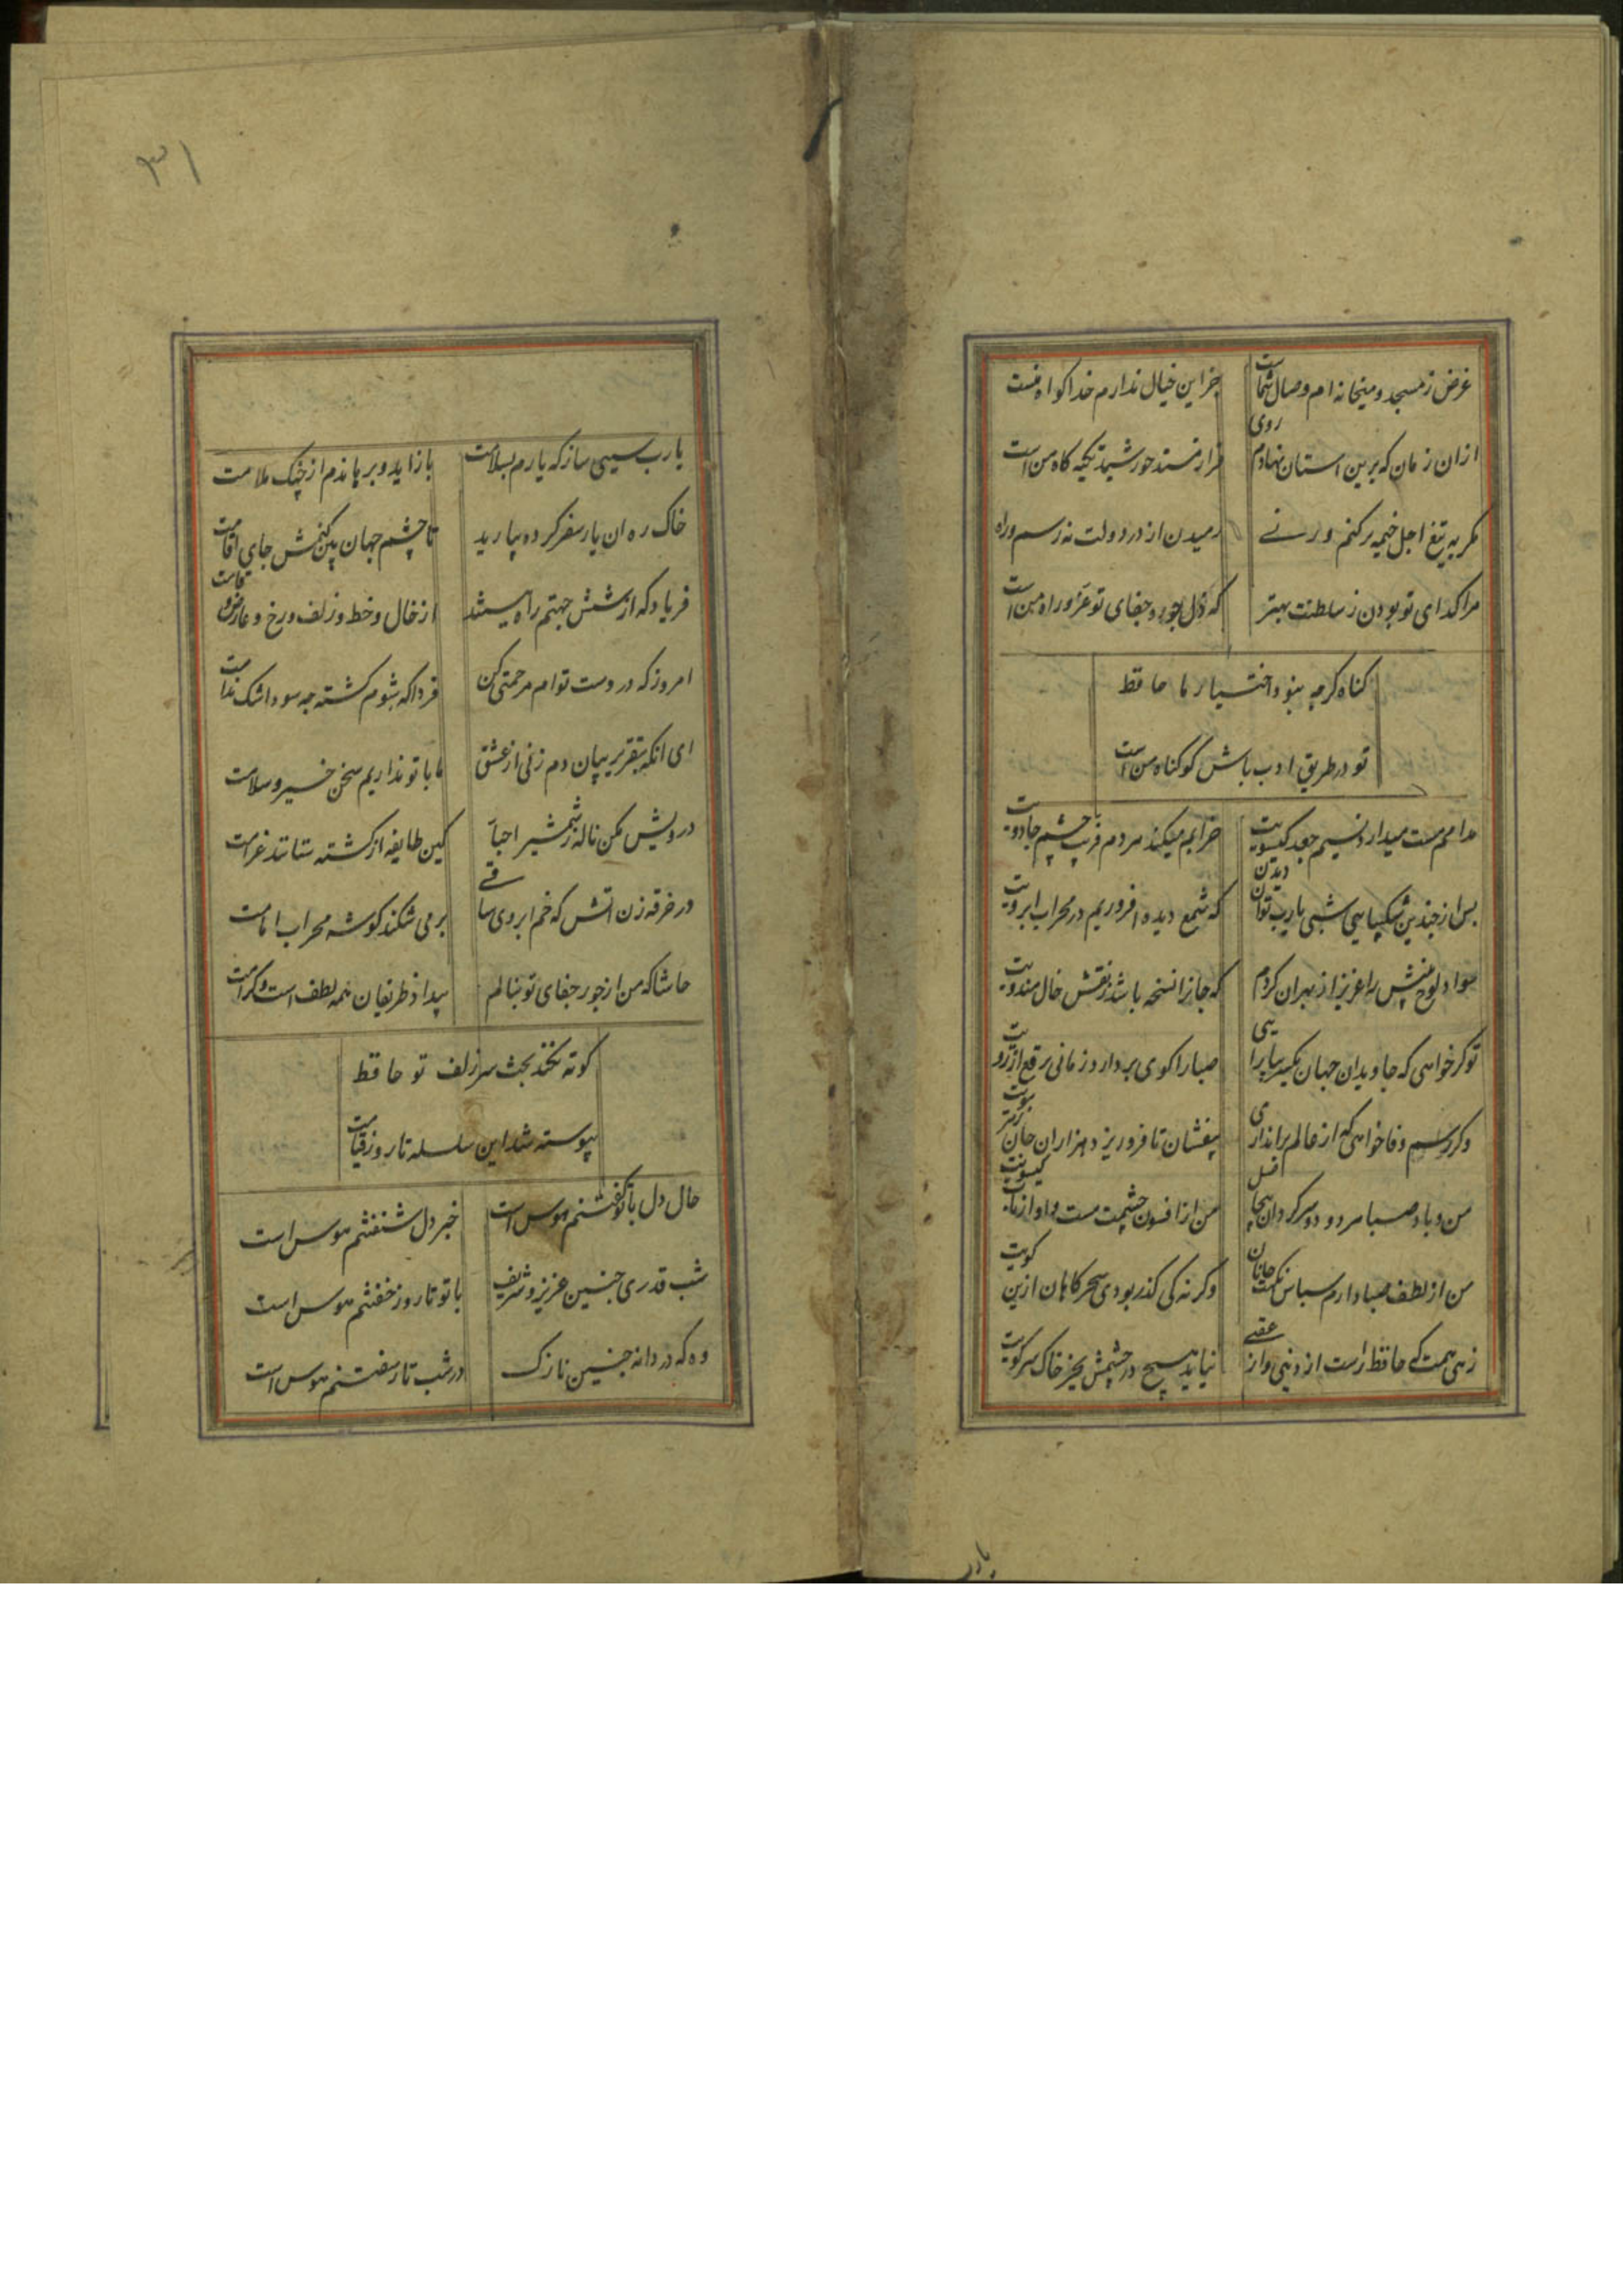 غرض ز مسجد و میخانه ام وصال شماست
جز این خیال ندارم خدا کواه منست
ازان زمان که برین استان نهادم روی
فراز مسند خورشید تکیه کاه من است
مکر به تیغ اجل خیمه برکنم ور نے
رمیدن از در دولت نه رسم و راه
مرا کدای تو بودن ز سلطنت بهتر
که ذل جور و جفای تو عز و راه من است
کناه کرچه نبود اختیار ما حافظ
تو در طریق ادب باش کو کناه من است
مدامم مست میدارد نسیم جعد کیسویت
خرابم میکند مردم فریب چشم جادویت
پس از چندین شکیبایی شبی یارب توان دیدن
که شمع دیده افروزیم در محراب ابرویت
سواد لوح بینش را عزیز از بهر ان کردم
که جانرا نسخه باشد ز نقش خال هندویت
تو کر خواهی که جاویدان جهان یکسر بیارایی
صبا را کوی بردارد زمانی برقع از رویت
وکر رسم وفا خواهی که از عالم براندازی
بیفشان تا فرو ریزد هزاران جان ز هر مویت
من و باد صبا مردود و سرکردان بیحاصل
من از افسون چشمت مست و او از تاب کیسویت
من از لطف صبا دارم سپاس نکهت جانان
وکر نه کی کذر بودی سحرکاهان ازین کویت
زهی همت که حافظ راست از دنیی و از عقبے
نیاید هیچ در چشمش بجز خاک سر کویت
یارب
۳۱
یارب سببی ساز که یارم بسلامت
بازاید و برهاندم از چنک ملامت
خاک ره ان یار سفر کرده بیارید
تا چشم جهان بین کنمش جای اقامت
فریاد که از شش جهتم راه ببستند
از خال و خط و زلف و رخ و عارض و قامت
امروز که در دست توام مرحمتی کن
فردا که شوم کشته چه سود اشک ندامت
ای انکه بتقریر بیان دم زنی از عشق
ما با تو نداریم سخن خیر و سلامت
درویش مکن ناله ز شمشیر احبا
کین طایفه از کشته ستانند غرامت
در خرقه زن اتش که خم ابروی ساقے
برمی شکند کوشه محراب امامت
حاشا که من از جور و جفای تو بنالم
بیداد ظریفان همه لطف است و کرامت
کوته نکند بحث سر زلف تو حافظ
پیوسته شد این سلسله تا روز قیامت
حال دل با تو کفتنم هوس است
خبر دل شنفتنم هوس است
شب قدری چنین عزیز و شریف
با تو تا روز خفتنم هوس است
وه که دردانه چنین نازک
در شب تار سفتنم هوس است